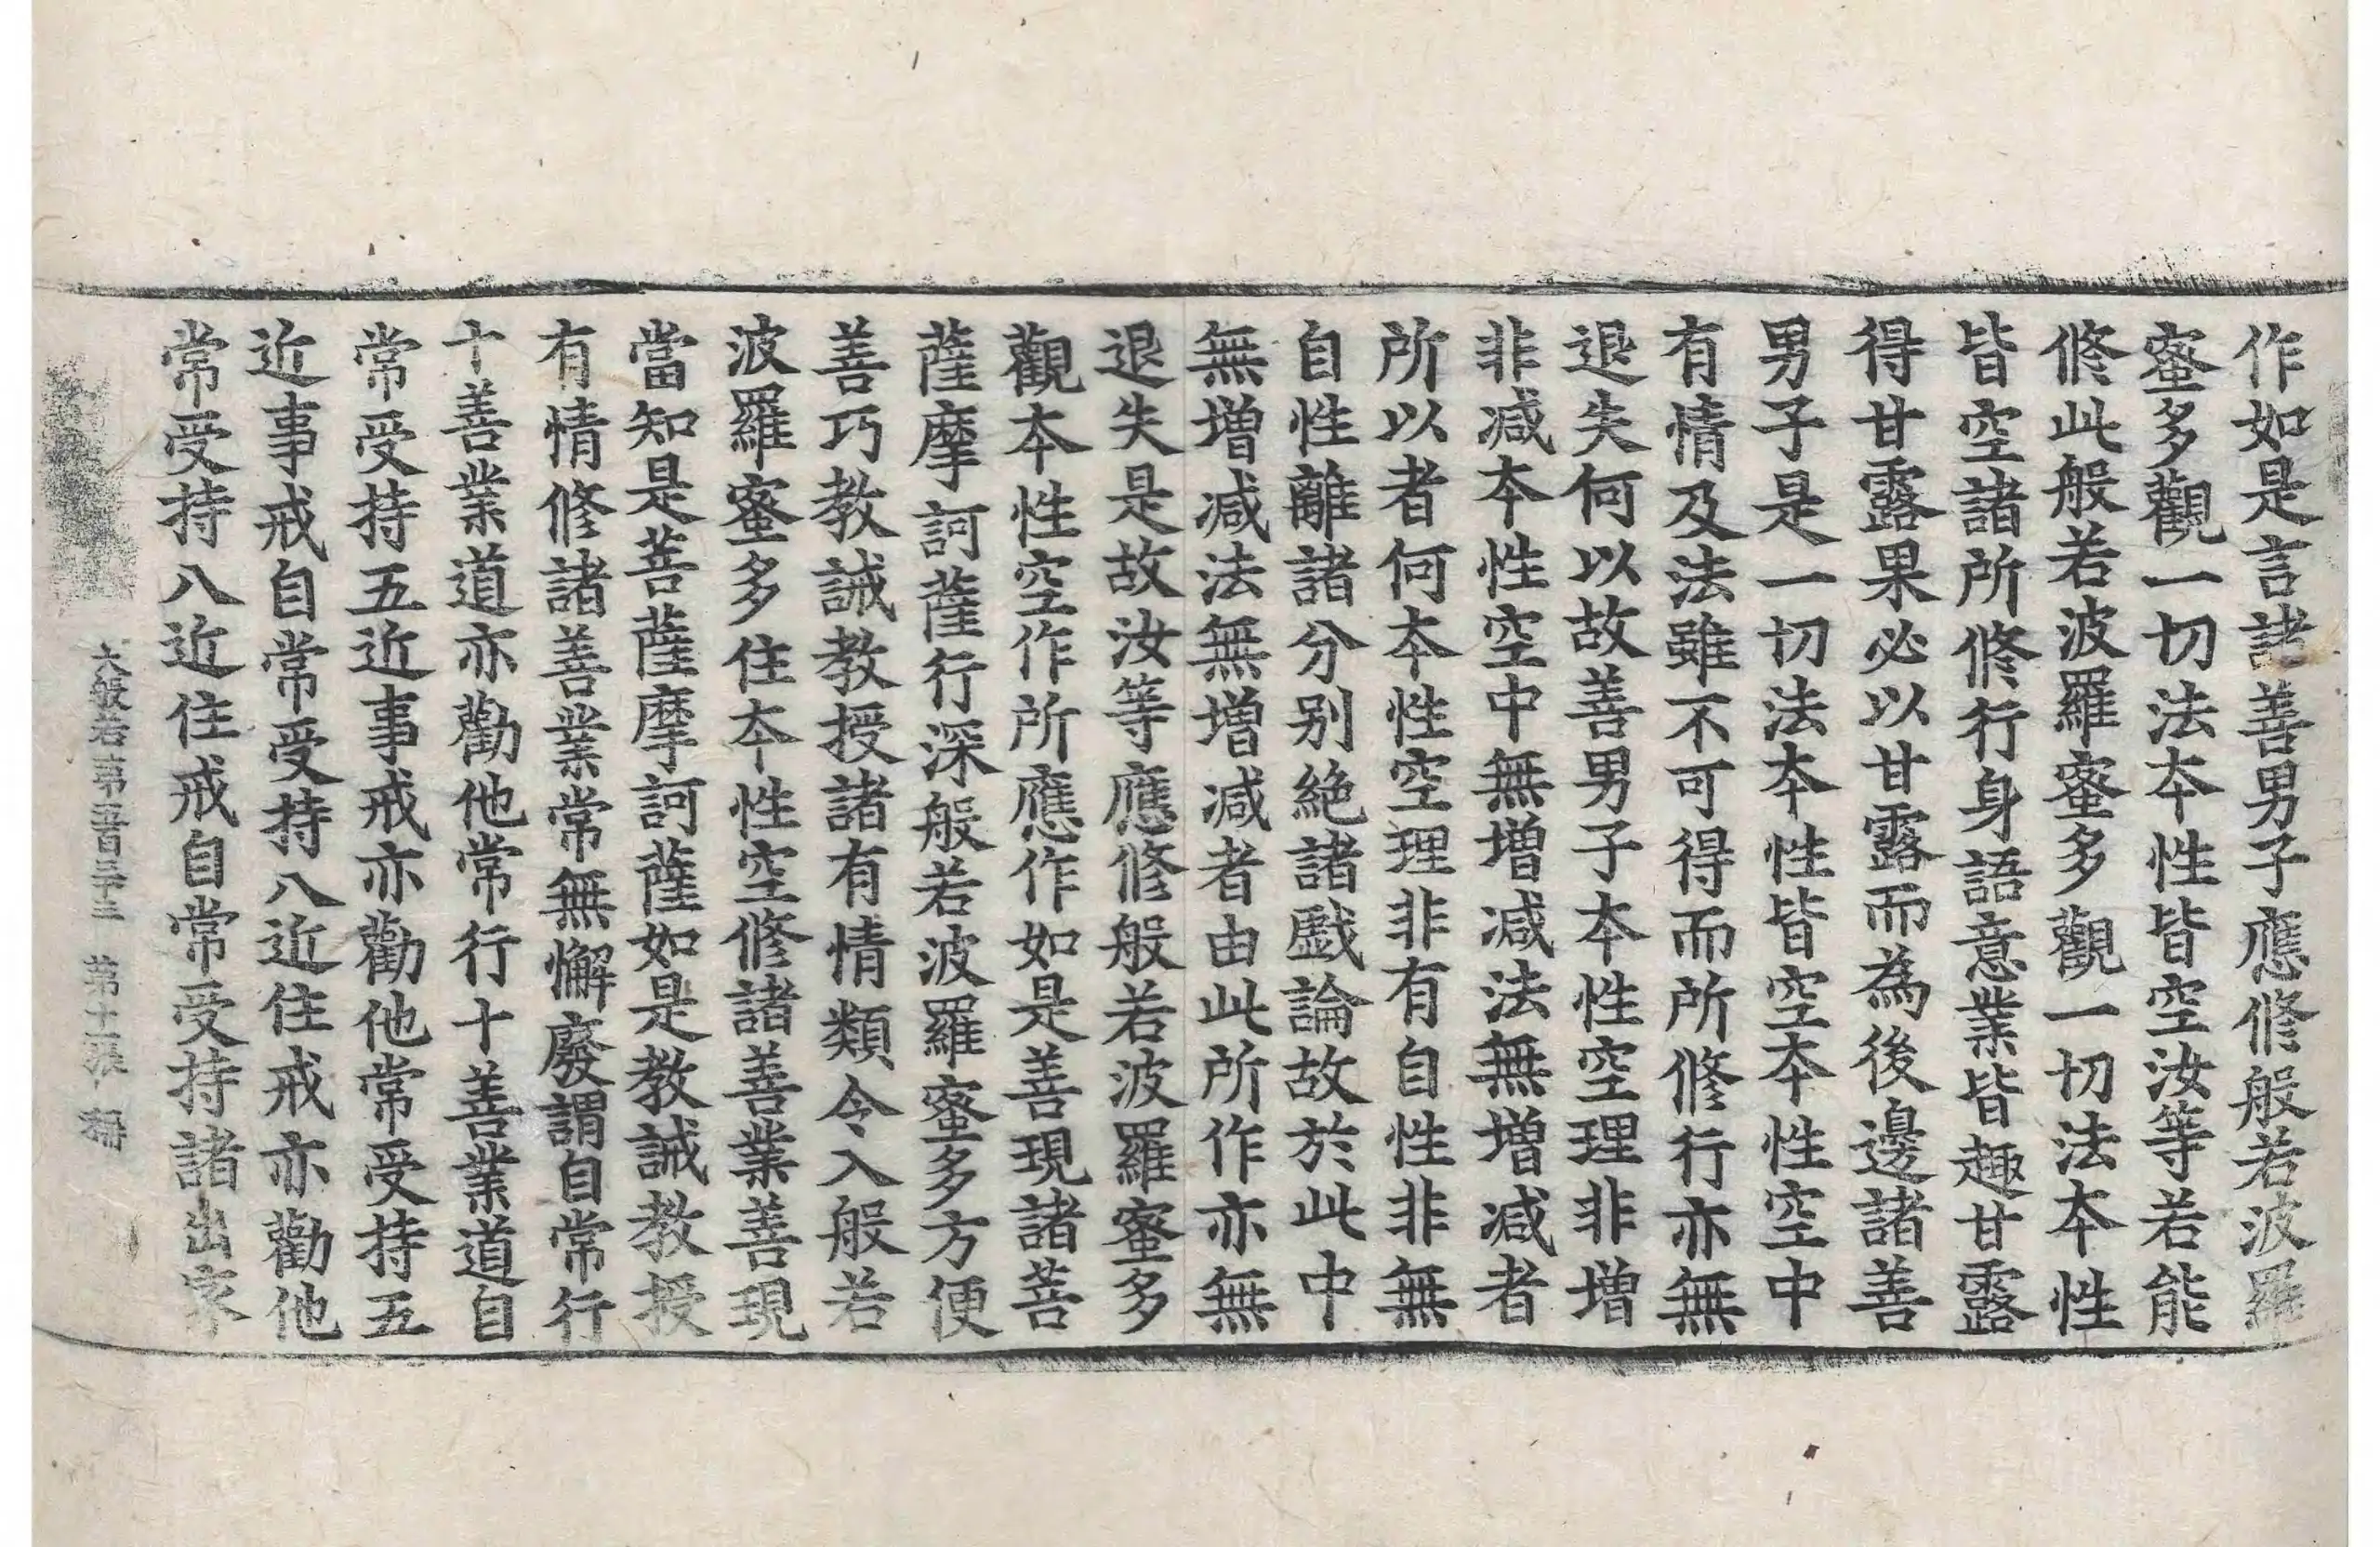 作如是言諸善男子應修般若波羅
蜜多觀一切法本性皆空汝等若能
修此般若波羅蜜多觀一切法本性
皆空諸所修行身語意業皆趣甘露
得甘露果必以甘露而為後邊諸善
男子是一切法本性皆空本性空中
有情及法雖不可得而所修行亦無
退失何以故善男子本性空理非增
非減本性空中無增減法無增減者
所以者何本性空理非有自性非無
自性離諸分別絶諸戲論故於此中
無增減法無增減者由此所作亦無
退失是故汝等應修般若波羅蜜多
觀本性空作所應作如是善現諸菩
薩摩訶薩行深般若波羅蜜多方便
善巧教誡教授諸有情類令入般若
波羅蜜多住本性空修諸善業善現
當知是菩薩摩訶薩如是教誡教授
有情修諸善業常無懈廢謂自常行
十善業道亦勸他常行十善業道自
常受持五近事戒亦勸他常受持五
近事戒自常受持八近住戒亦勸他
常受持八近住戒自常受持諸出家
大般若第五百三十三 第十二張